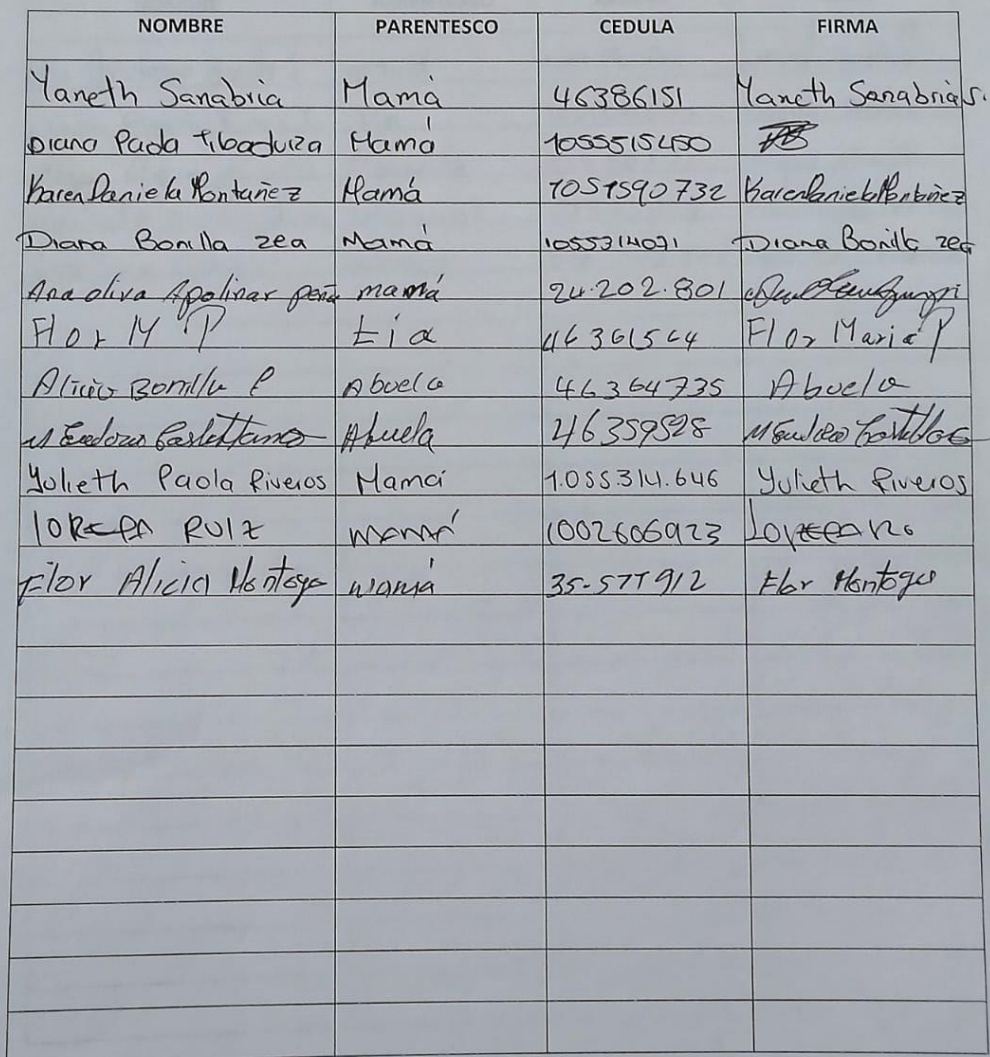 NOMBRE PARENTESCO CEDULA FIRMA
Yaneth Sanabria Mamá 46386151 Yaneth Sanabria S.
Diana Paola Tibaduiza Mamá 1055515450
Karen Daniela Montañez Mamá 1051590732 Karen Daniela Montañez
Diana Bonilla zea Mamá 1055314071 Diana Bonilla zea
Ana oliva Apolinar peña mamá 24.202.801
Flor M P tía 46361564 Flor Maria P
Alicia Bonilla P Abuela 46364735 Abuela
Abuela 46359528
Yulieth Paola Riveros Mamá 1.055.314.646 Yulieth Riveros
LORENA RUIZ mamá 1002606923
Flor Alicia Montoya mamá 35-577912 Flor Montoya